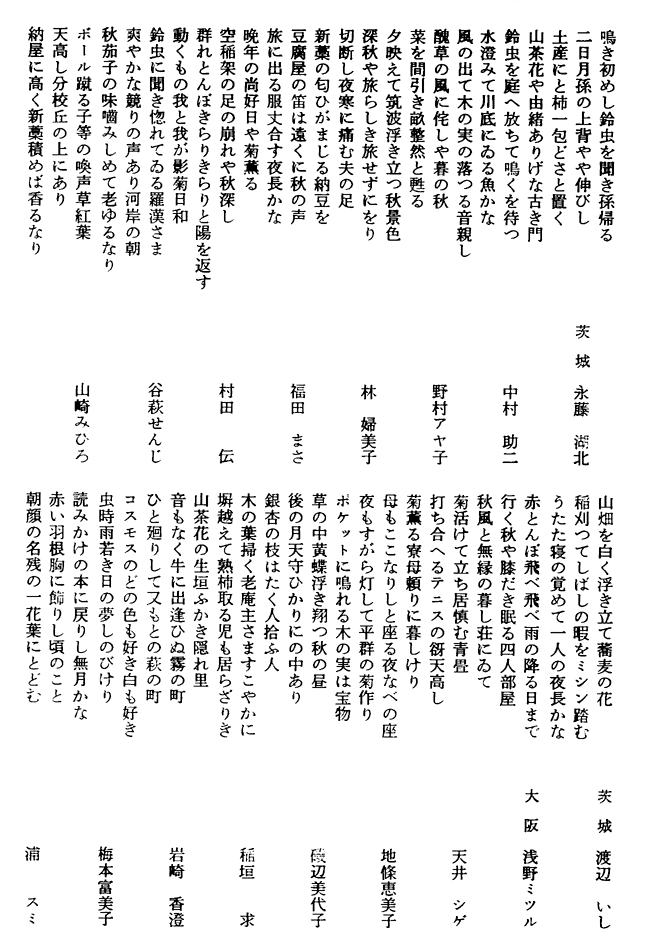 鳴き初めし鈴虫を聞き孫帰る
二日月孫の上背やや伸びし
茨城 永藤 湖北
土産にと柿一包どさと置く
山茶花や由緒ありげな古き門
鈴虫を庭へ放ちて鳴くを待つ
中村 助二
水澄みて川底にゐる魚かな
風の出て木の実の落つる音親し
醜草の風に侘しや暮の秋
野村アヤ子
菜を間引き畝整然と甦る
夕映えて筑波浮き立つ秋景色
深秋や旅らしき旅せずにをり
林 婦美子
切断し夜寒に痛む夫の足
新藁の匂ひがまじる納豆を
豆腐屋の笛は遠くに秋の声
福田 まさ
旅に出る服丈合す夜長かな
晩年の尚好日や菊薫る
空稲架の足の崩れや秋深し
村田 伝
群れとんぼきらりきらりと陽を返す
動くもの我と我が影菊日和
鈴虫に聞き惚れてゐる羅漢さま
谷萩せんじ
爽やかな競りの声あり河岸の朝
秋茄子の味噛みしめて老ゆるなり
ボール蹴る子等の喚声草紅葉
山崎みひろ
天高し分校丘の上にあり
納屋に高く新藁積めば香るなり
山畑を白く浮き立て蕎麦の花
茨城 渡辺 いし
稲刈つてしばしの暇をミシン踏む
うたた寝の覚めて一人の夜長かな
赤とんぼ飛べ飛べ雨の降る日まで
大阪 浅野ミツル
行く秋や膝だき眠る四人部屋
秋風と無縁の暮し荘にゐて
菊活けて立ち居慎む青畳
天井 シゲ
打ち合へるテニスの谺天高し
菊薫る寮母頼りに暮しけり
母もここなりしと座る夜なべの座
地條恵美子
夜もすがら灯して平群の菊作り
ポケットに鳴れる木の実は宝物
草の中黄蝶浮き翔つ秋の昼
磯辺美代子
後の月天守ひかりにの中あり
銀杏の枝はたく人拾ふ人
木の葉掃く老庵主さますこやかに
稲垣 求
塀越えて熟柿取る児も居らざりき
山茶花の生垣ふかき隠れ里
音もなく牛に出逢ひぬ霧の町
岩崎 香澄
ひと廻りして又もとの萩の町
コスモスのどの色も好き白も好き
虫時雨若き日の夢しのびけり
梅本富美子
読みかけの本に戻りし無月かな
赤い羽根胸に飾りし頃のこと
朝顔の名残の一花葉にとどむ
浦 スミ